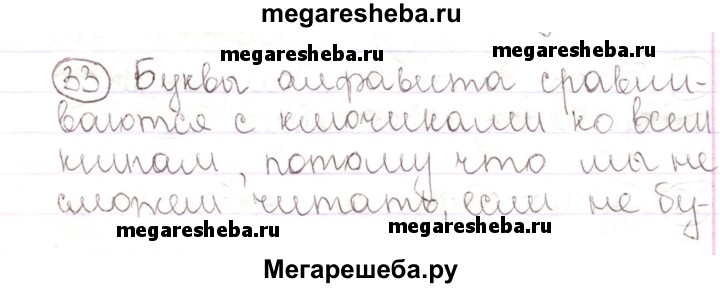 megaresheba.ru
megaresheba.ru megaresheba.ru
33 Буквы алфавита сравни-
ваются с ключиками ко всем
книгам, потому что мы не
сможем читать, если не бу-
megaresheba.ru megaresheba.ru
Мегарешеба.ру